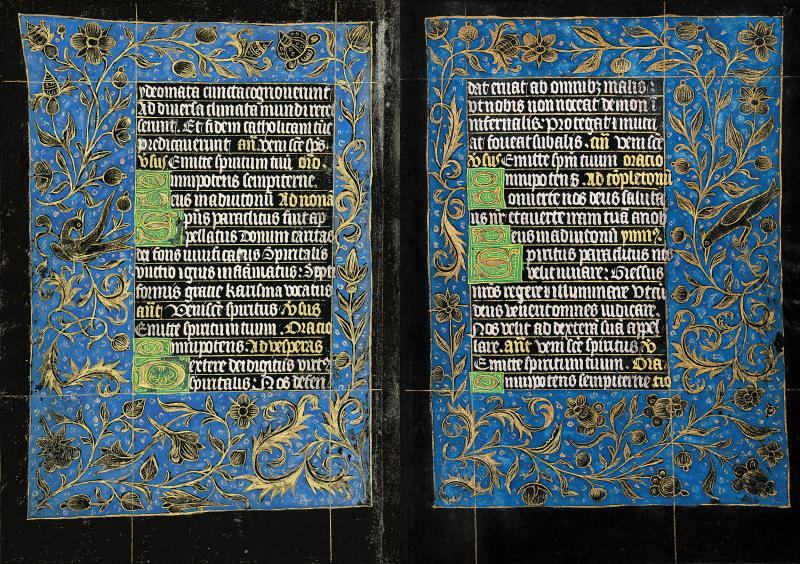 ydeomata cuncta cognouerunt
Ad diuersa climata mundi rece
serunt. Et fidem catholicam tūc
predicauerunt añ. Veni scē sp̄s.
v̄sus Emitte spiritum tuū. oro.
Omnipotens sempiterne.
Deus in adiutoriū Ad nona
Spūs paraclitus fuit ap
pellatus Donum caritas
dei fons uiuificatus Spiritalis
vnctio ignis inflāmatus: Sept
formis gracie karisma vocatus
añt Veni scē spiritus v̄sus
Emitte spiritum tuum. Oracio
Omnipotens. Ad vesperas
Dextere dei digitus virtꝰ
spiritalis: Nos defen
dat eruat ab omnibꝫ malis:
vt nobis non noceat demon
infernalis: Protegat nutri
at foueat sub alis. añ Veni scē
v̄sus Emitte sp̄m tuum oracio
Omnipotens. Ad cōpletoriū
Conuerte nos deus saluta
us nr̄ et auerte iram tuā a nob
Deus in adiutoriū ymnꝰ
Spiritus paraclitus nos
velit iuuare: Gressus
nr̄os regere illuminare vt cū
deus venerit omnes iudicare.
Nos velit ad dexteram suā appel
lare. Añt veni scē spiritus v̄
Emitte spiritum tuum. Ora
Omnipotens sempiterne cio